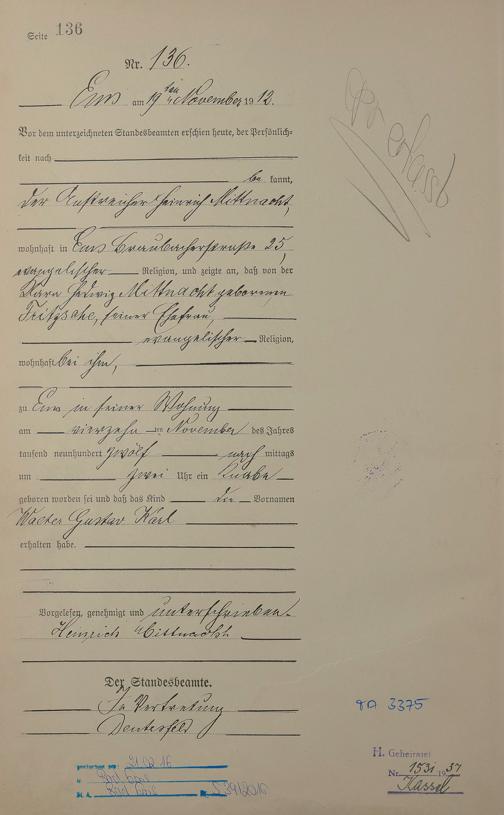 Seite 136
Nr. 136.
Ems am 19ten November 1912.
Vor dem unterzeichneten Standesbeamten erschien heute, der Persönlich-
keit nach
be kannt,
der Anstreicher Heinrich Mittnacht,
wohnhaft in Ems Braubacherstraße 25,
evangelischer Religion, und zeigte an, daß von der
Klara Hedwig Mittnacht geborenen
Fritzsche, seiner Ehefrau,
evangelischer Religion,
wohnhaft bei ihm,
zu Ems in seiner Wohnung
am vierzehnten November des Jahres
tausend neunhundert zwölf nach mittags
um zwei Uhr ein Knabe
geboren worden sei und daß das Kind die Vornamen
Walter Gustav Karl
erhalten habe.
Vorgelesen, genehmigt und unterschrieben.
Heinrich Mittnacht
Der Standesbeamte.
In Vertretung
erfasst
3375
H. Geheiratet
Nr. 153 1937
Kassel
21.02.16
Bad Ems
Bad Ems